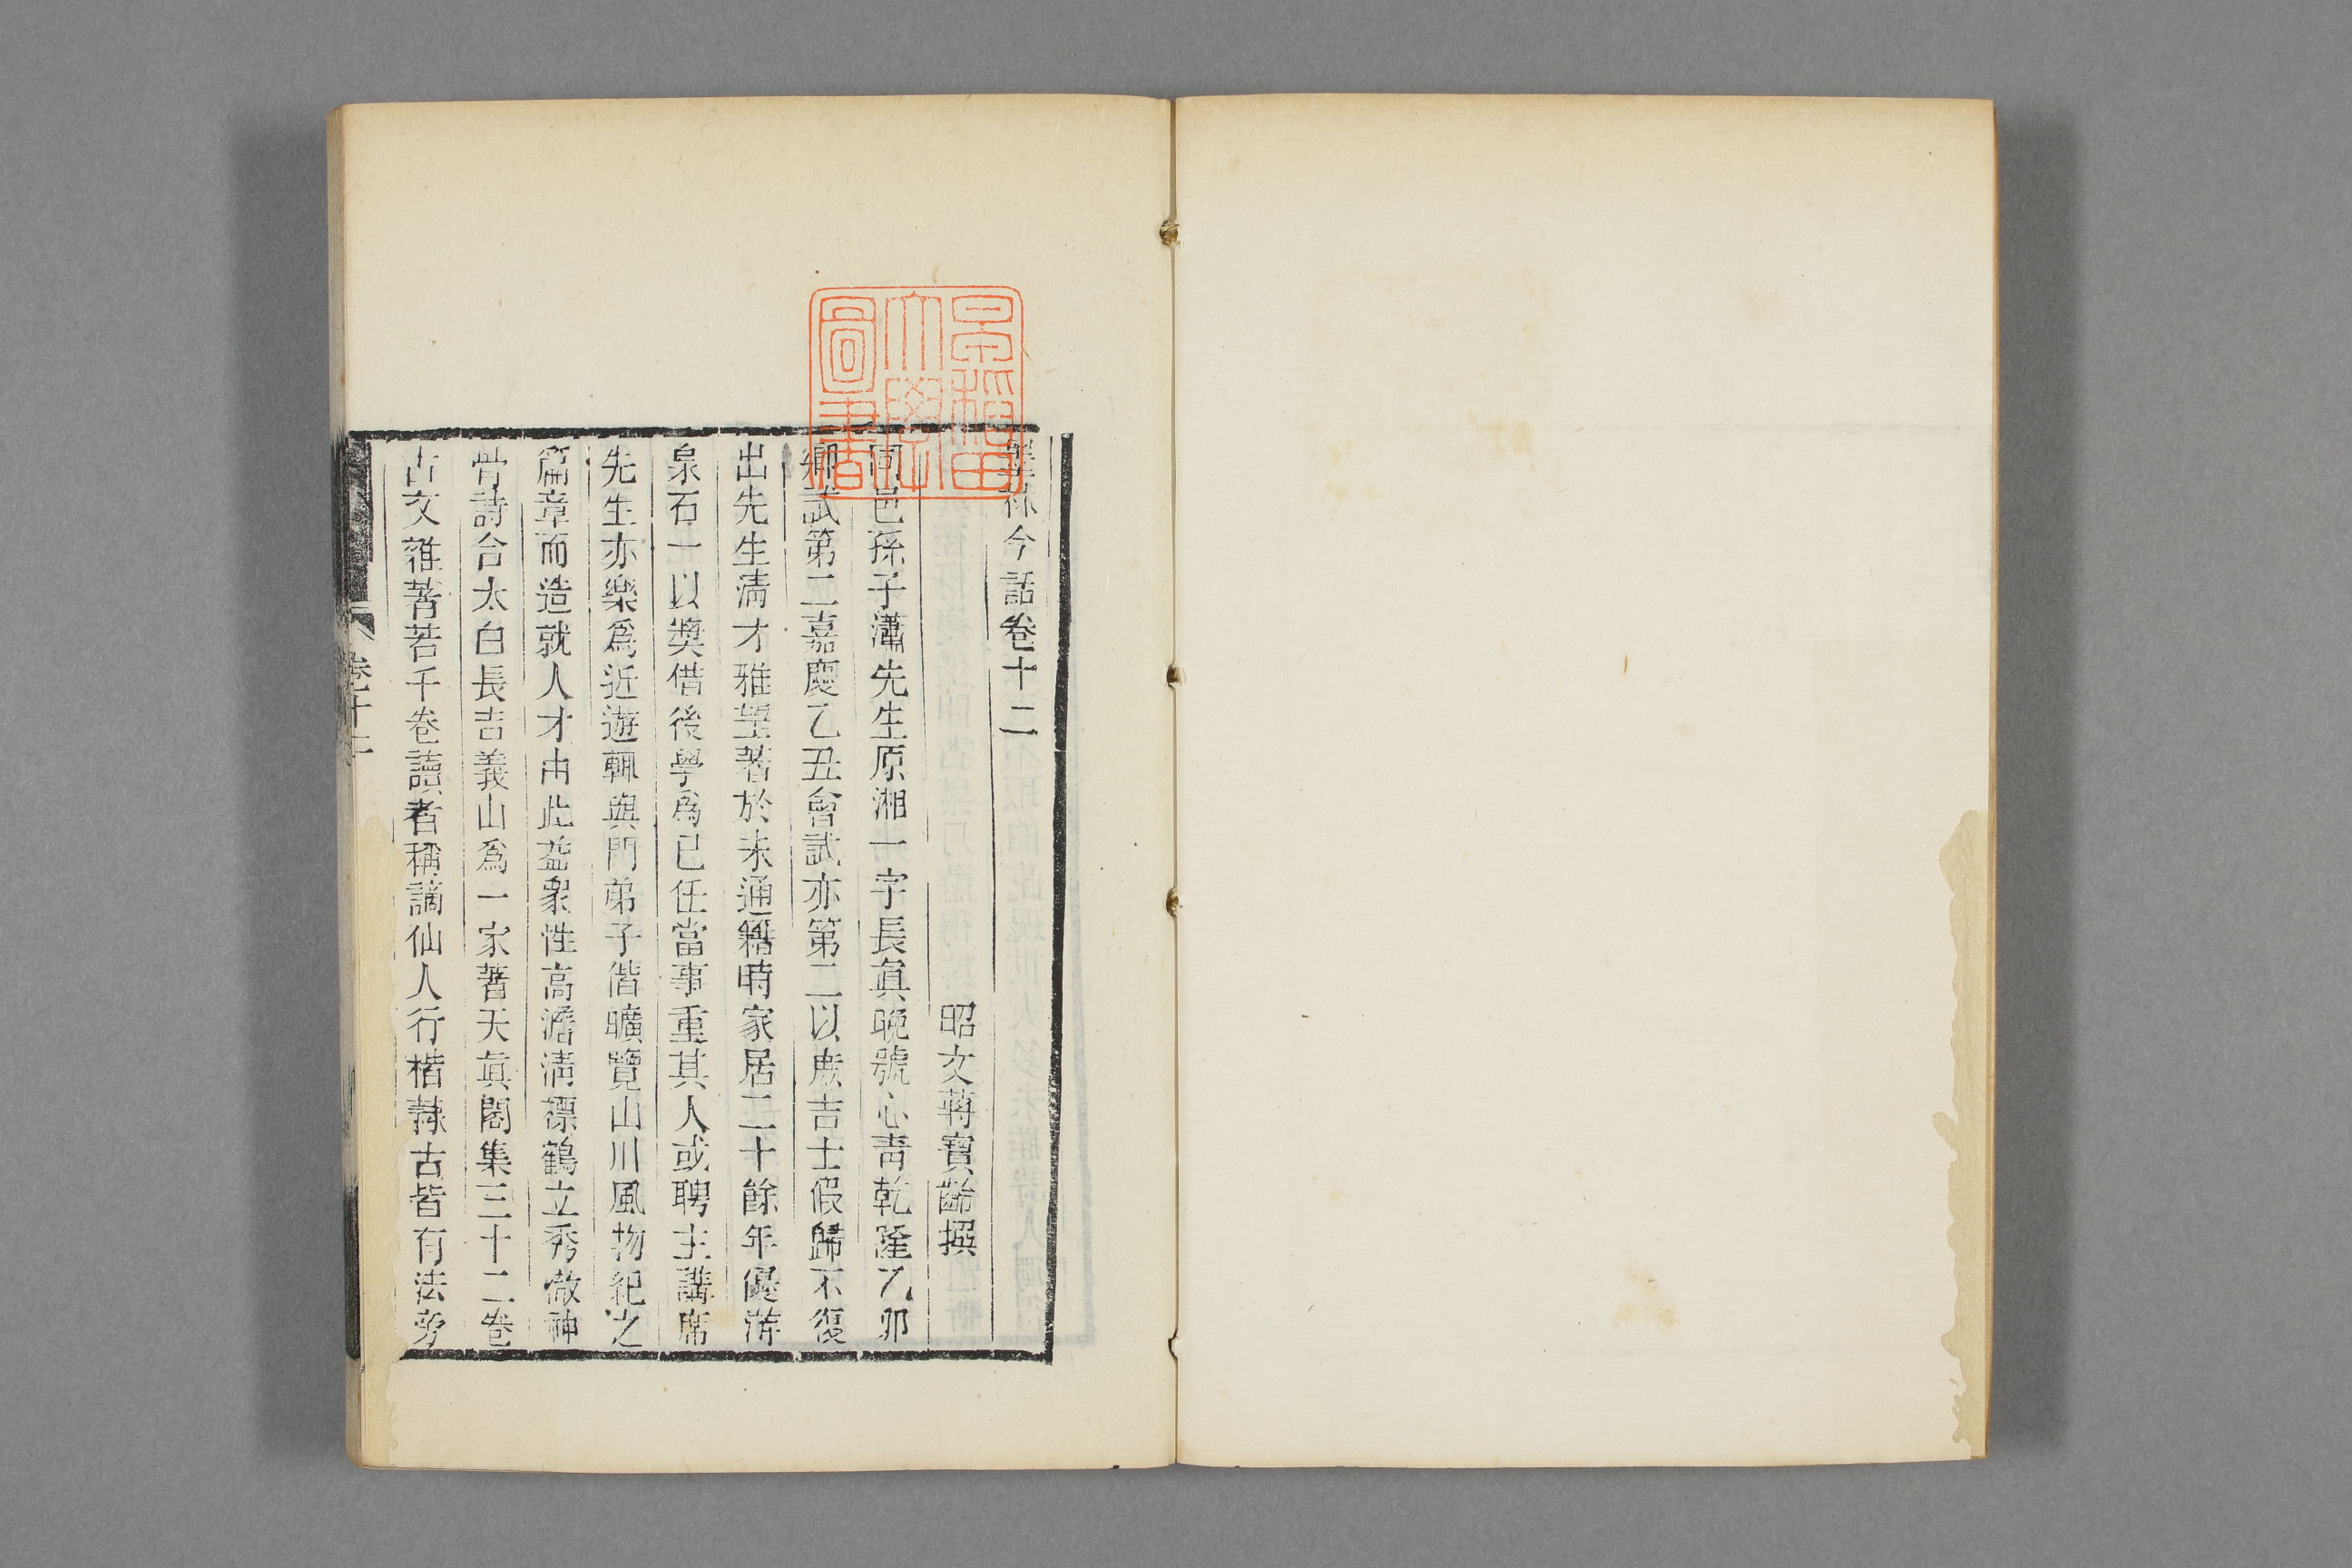 墨林今話卷十二
昭文蔣寶齡撰
同邑孫子瀟先生原湘一字長眞晚號心靑乾隆乙卯
鄉試第二嘉慶乙丑會試亦第二以庶吉士假歸不復
出先生淸才雅望著於未通籍時家居二十餘年優游
泉石一以奬借後學爲已任當事重其人或聘主講席
先生亦樂爲近遊輒與門弟子偕曠覽山川風物紀之
篇章而造就人才由此益衆性高澹淸標鶴立秀徹神
骨詩合太白長吉義山爲一家著天眞閣集三十二卷
古文雜著若干卷讀者稱謫仙人行楷隸古皆有法旁
卷十二
早稻田大學圖書